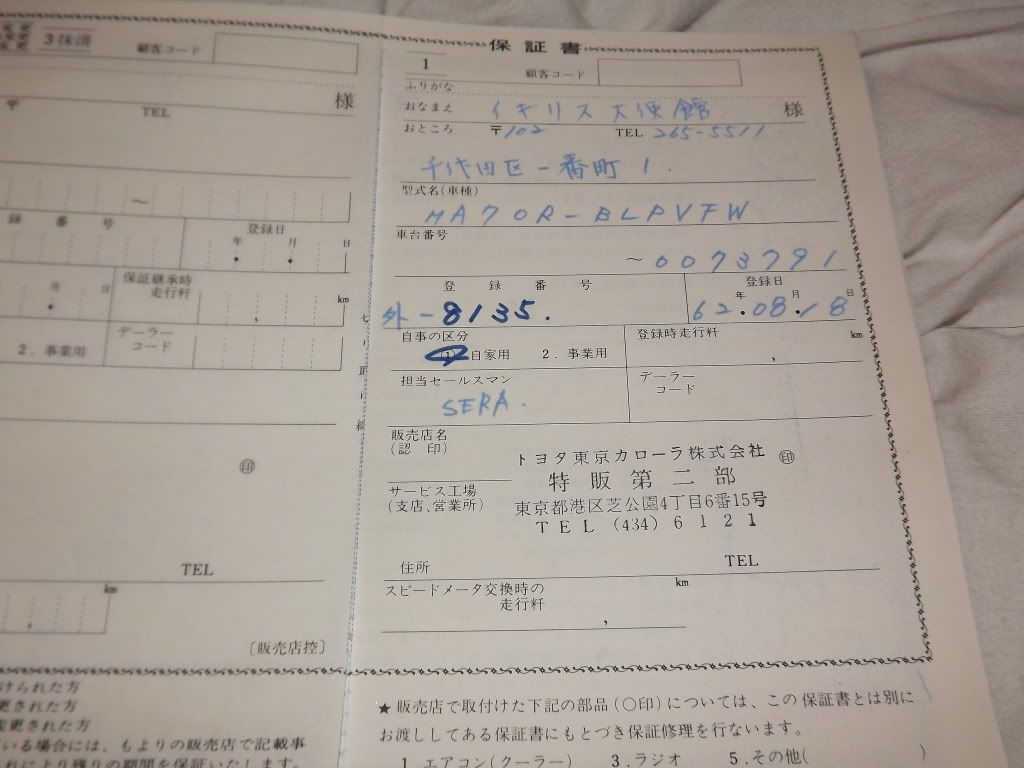 3 抹消
顧客コード
様
〒
TEL
～
録 番 号
登録日
年 月 日
保証継承時
走行粁
km
2. 事業用
デーラー
コード
㊞
TEL
km
〔販売店控〕
けられた方
更された方
変更された方
いる場合には、もよりの販売店で記載事
れにより残りの期間を保証いたします。
切り取り線
保証書
1
顧客コード
ふりがな
おなまえ イギリス大使館 様
おところ 〒102 TEL 265-5511
千代田区一番町1.
型式名(車種)
MA70R-BLPVFW
車台番号
～0073791
登録番号
登録日
年 月 日
外-8135.
62.08.18
自事の区分
① 自家用 2. 事業用
登録時走行粁
km
担当セールスマン
SERA.
デーラー
コード
販売店名
(認印)
トヨタ東京カローラ株式会社 ㊞
特販第二部
サービス工場
(支店、営業所)
東京都港区芝公園4丁目6番15号
TEL (434) 6121
住所
TEL
スピードメータ交換時の
走行粁
km
★販売店で取付けた下記の部品(○印)については、この保証書とは別に
お渡ししてある保証書にもとづき保証修理を行ないます。
1.エアコン(クーラー) 3.ラジオ 5.その他( )